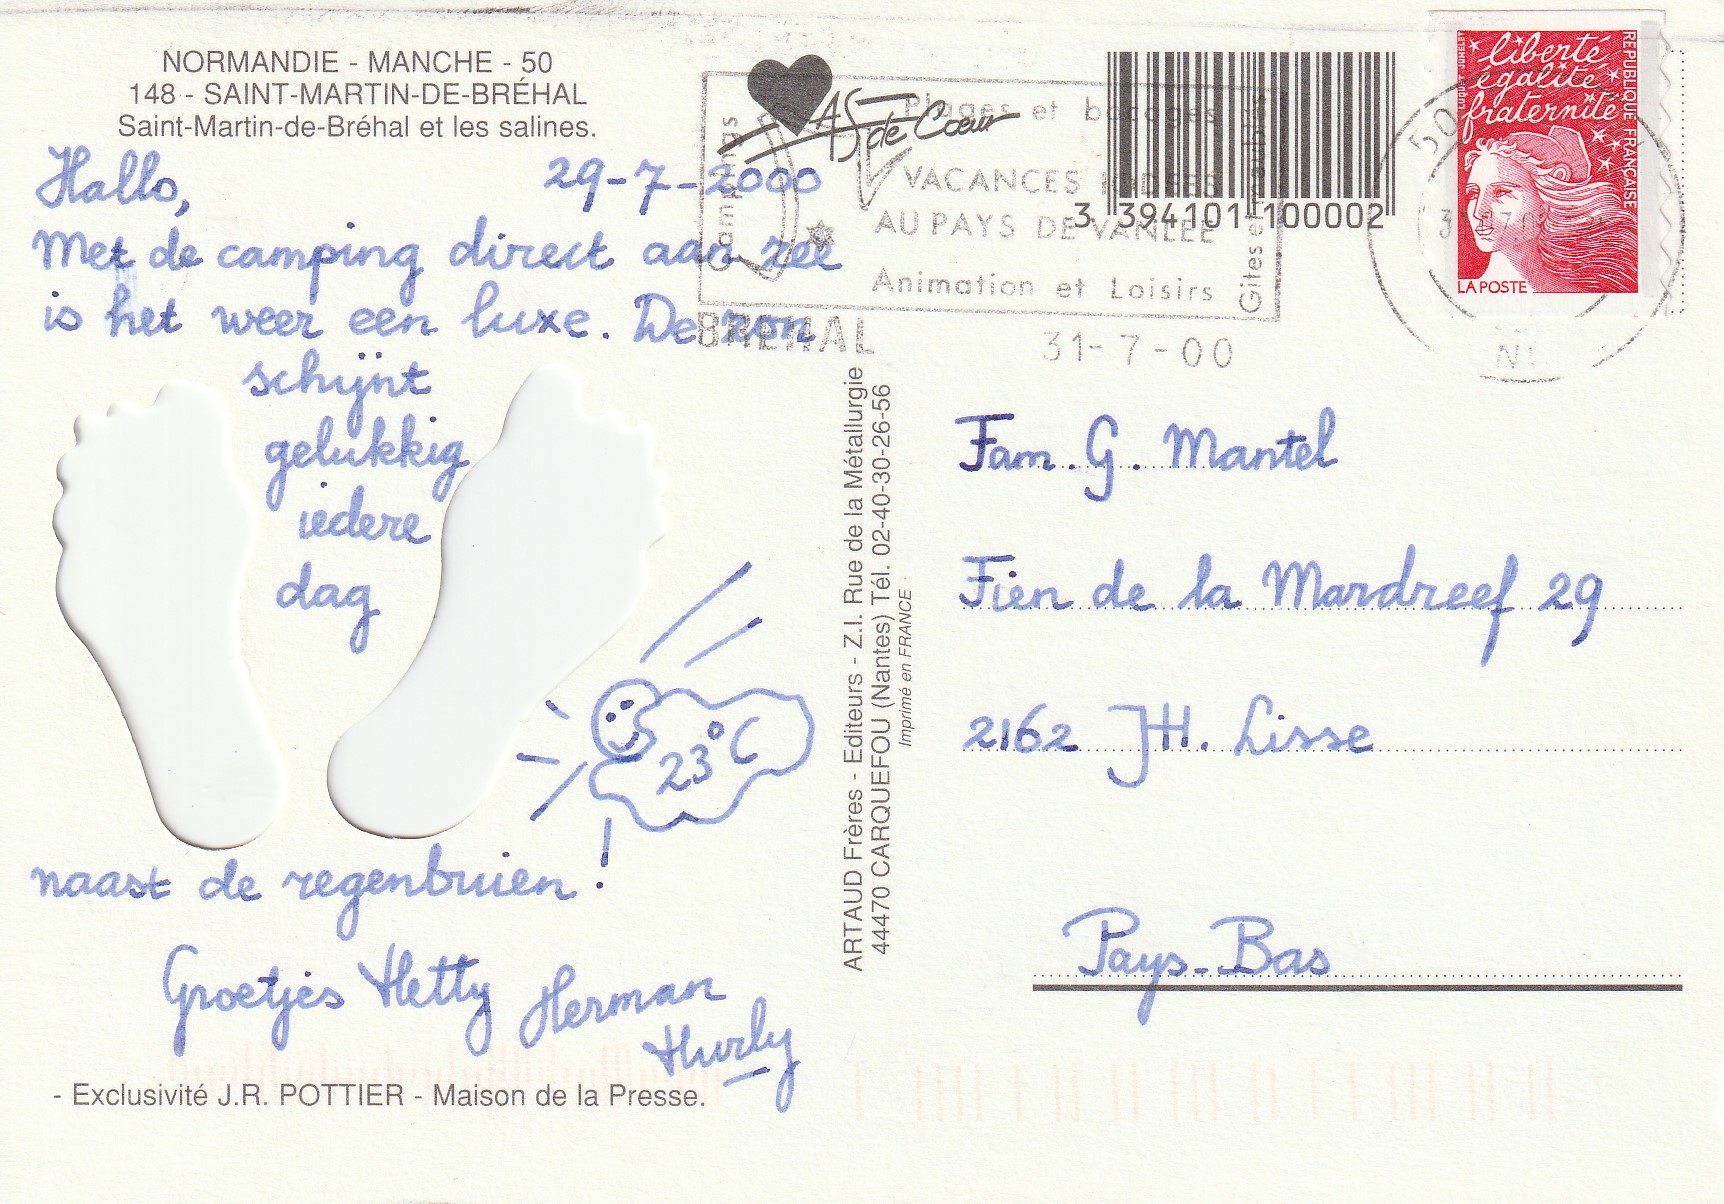 NORMANDIE - MANCHE - 50
148 - SAINT-MARTIN-DE-BRÉHAL
Saint-Martin-de-Bréhal et les salines.
Hallo, 29-7-2000
Met de camping direct aan zee
is het weer een luxe. De zon
schijnt
gelukkig
iedere
dag
23°C
naast de regenbuien!
Groetjes Hetty Herman
Hurly
- Exclusivité J.R. POTTIER - Maison de la Presse.
ARTAUD Frères - Editeurs - Z.I. Rue de la Métallurgie
44470 CARQUEFOU (Nantes) Tél. 02-40-30-26-56
Imprimé en FRANCE
AS de Cœur
Campings
Plages et bocages
VACANCES
AU PAYS DE VANLÉE
Animation et Loisirs
Gites et meublés
BREHAL
31-7-00
3 394101 100002
liberté
égalité
fraternité
RÉPUBLIQUE FRANÇAISE
LA POSTE
Fam. G. Mantel
Fien de la Mardreef 29
2162 JH. Lisse
Pays-Bas